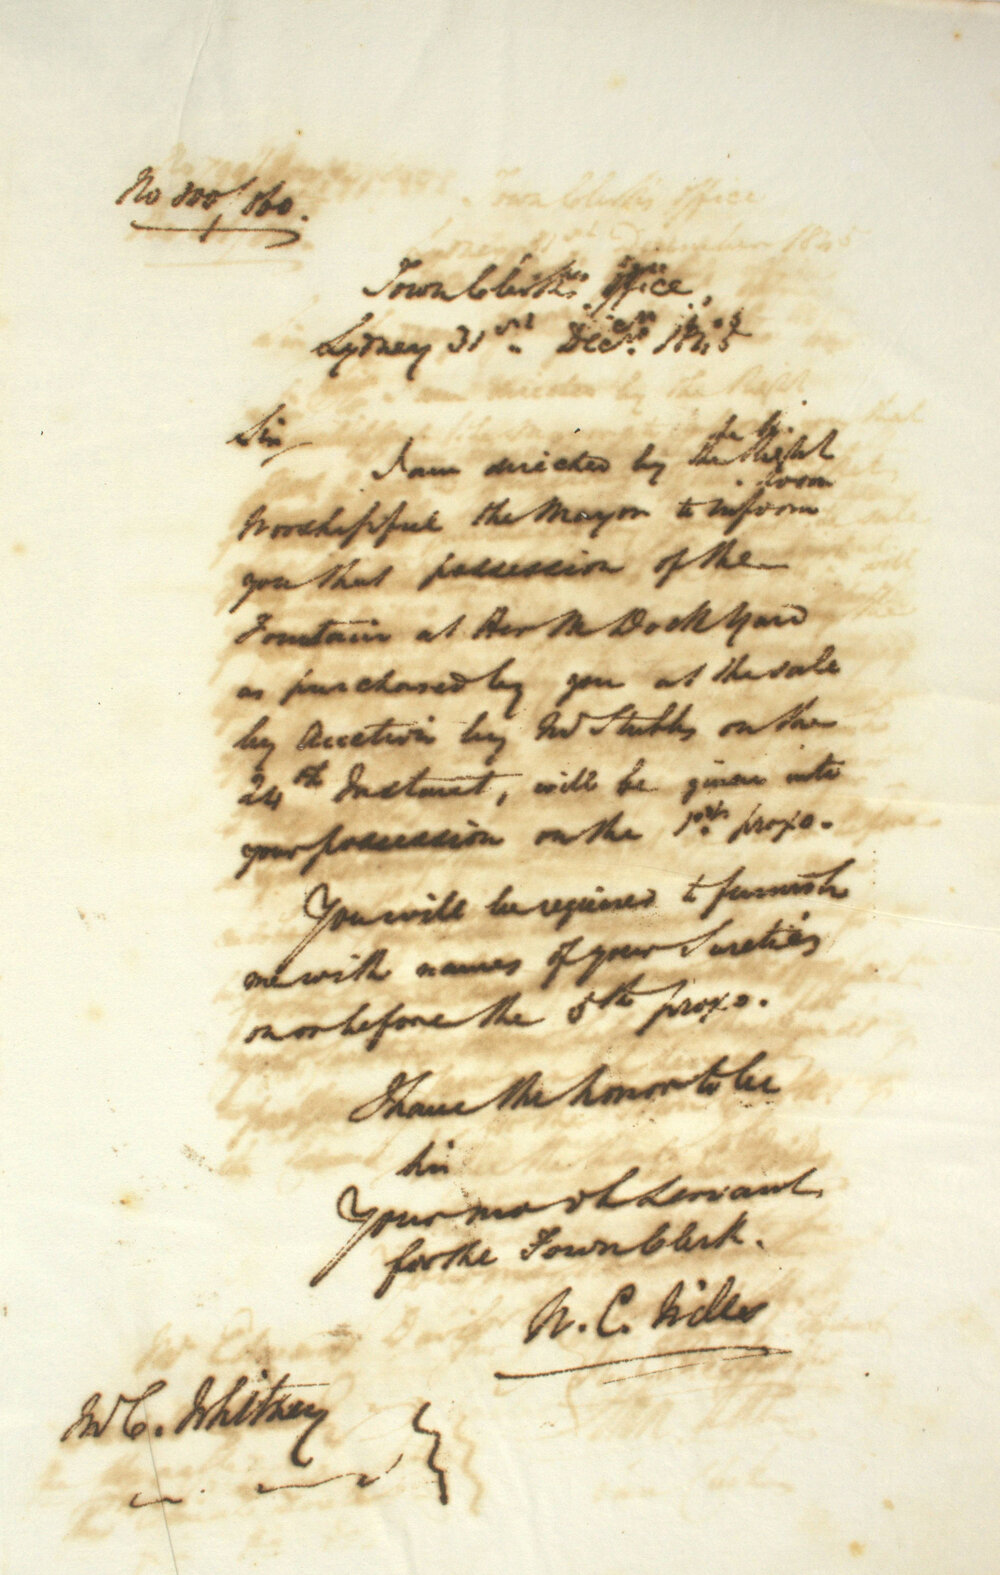 Town Clerk's Office
Sydney 31st. Decr. 1845
Sir,
I am directed by the Right
Worshipful the Mayor to inform
you that possession of the
Fountain at Her M Dock Yard
as purchased by you at the sale
by Auction by Mr Stubbs on the
24th Instant, will be given into
your possession on the 1st. proxo.
You will be required to furnish
me with names of your Sureties
on or before the 5th proxo.
I have the honor to be
Sir
Your mo ob Servant
for the Town Clerk.
W. C.
Mr C. Whitney